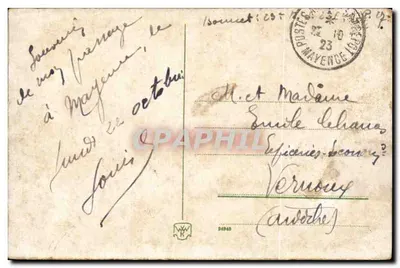 Souvenir
de mon passage
à Mayence, le
lundi 22 octobre
Louis
Bonnet: 23e
POSTES
MAYENCE
22 10
23
M. et Madame
Emile
Epiceries
Vernoux
(Ardèche)
CPAPHIL.COM